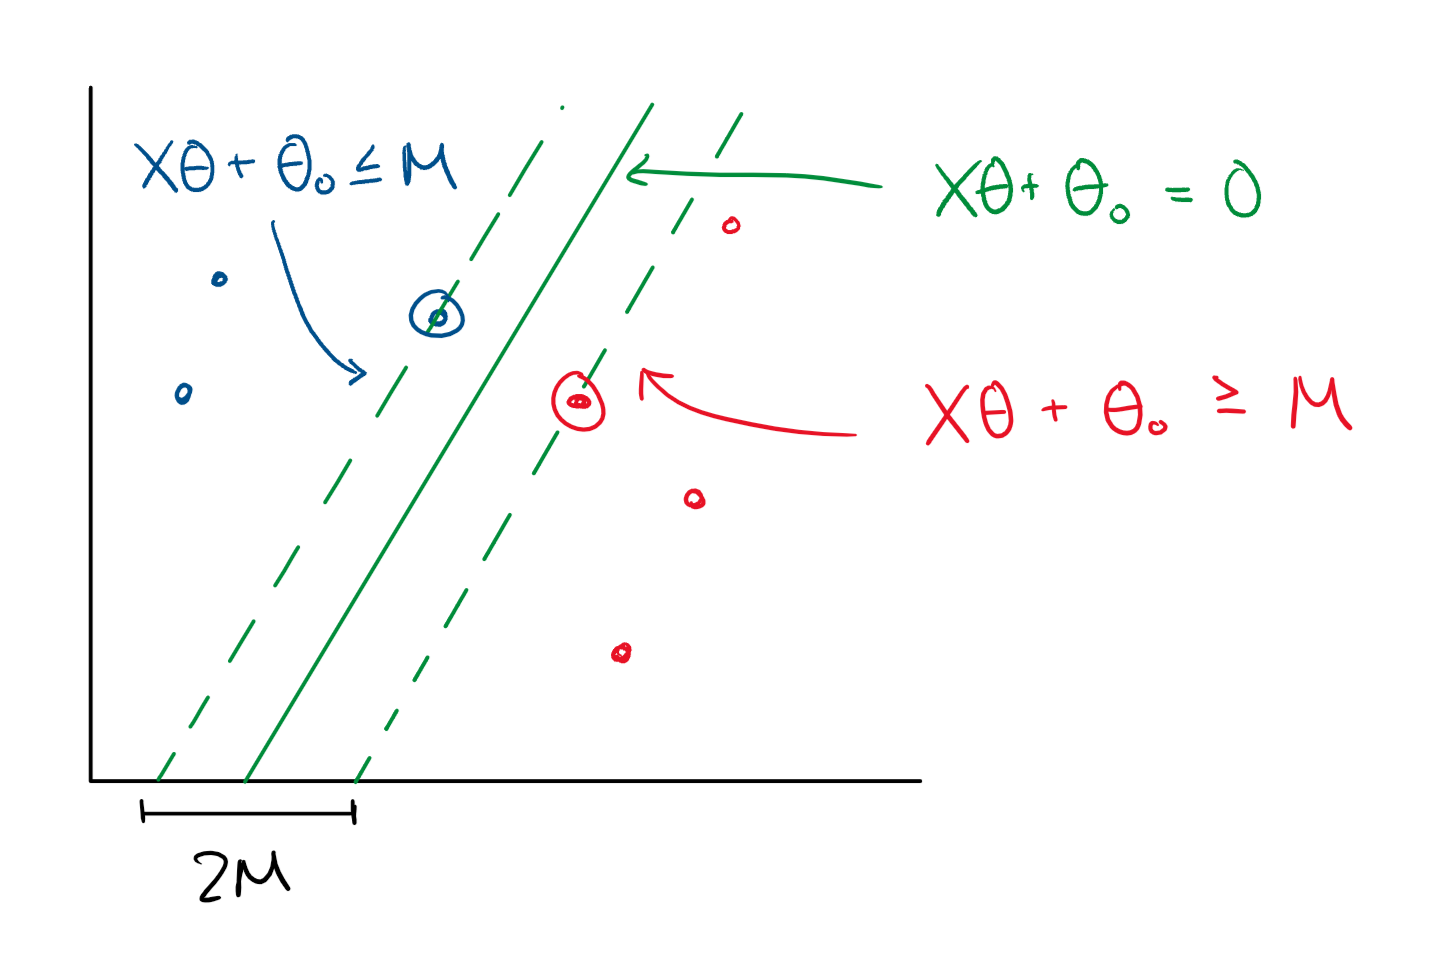 Xθ + θ₀ ≤ M
Xθ + θ₀ = 0
Xθ + θ₀ ≥ M
2M